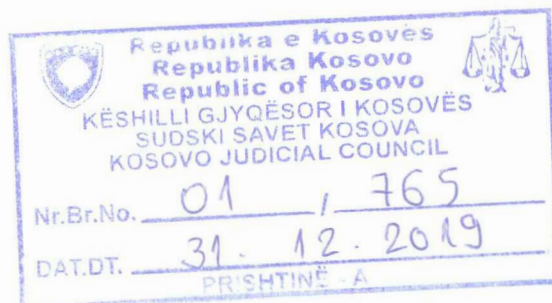 Republika e Kosovës
Republika Kosovo
Republic of Kosovo
KËSHILLI GJYQËSOR I KOSOVËS
SUDSKI SAVET KOSOVA
KOSOVO JUDICIAL COUNCIL
Nr.Br.No. 01 / 765
DAT.DT. 31. 12. 2019
PRISHTINË - A